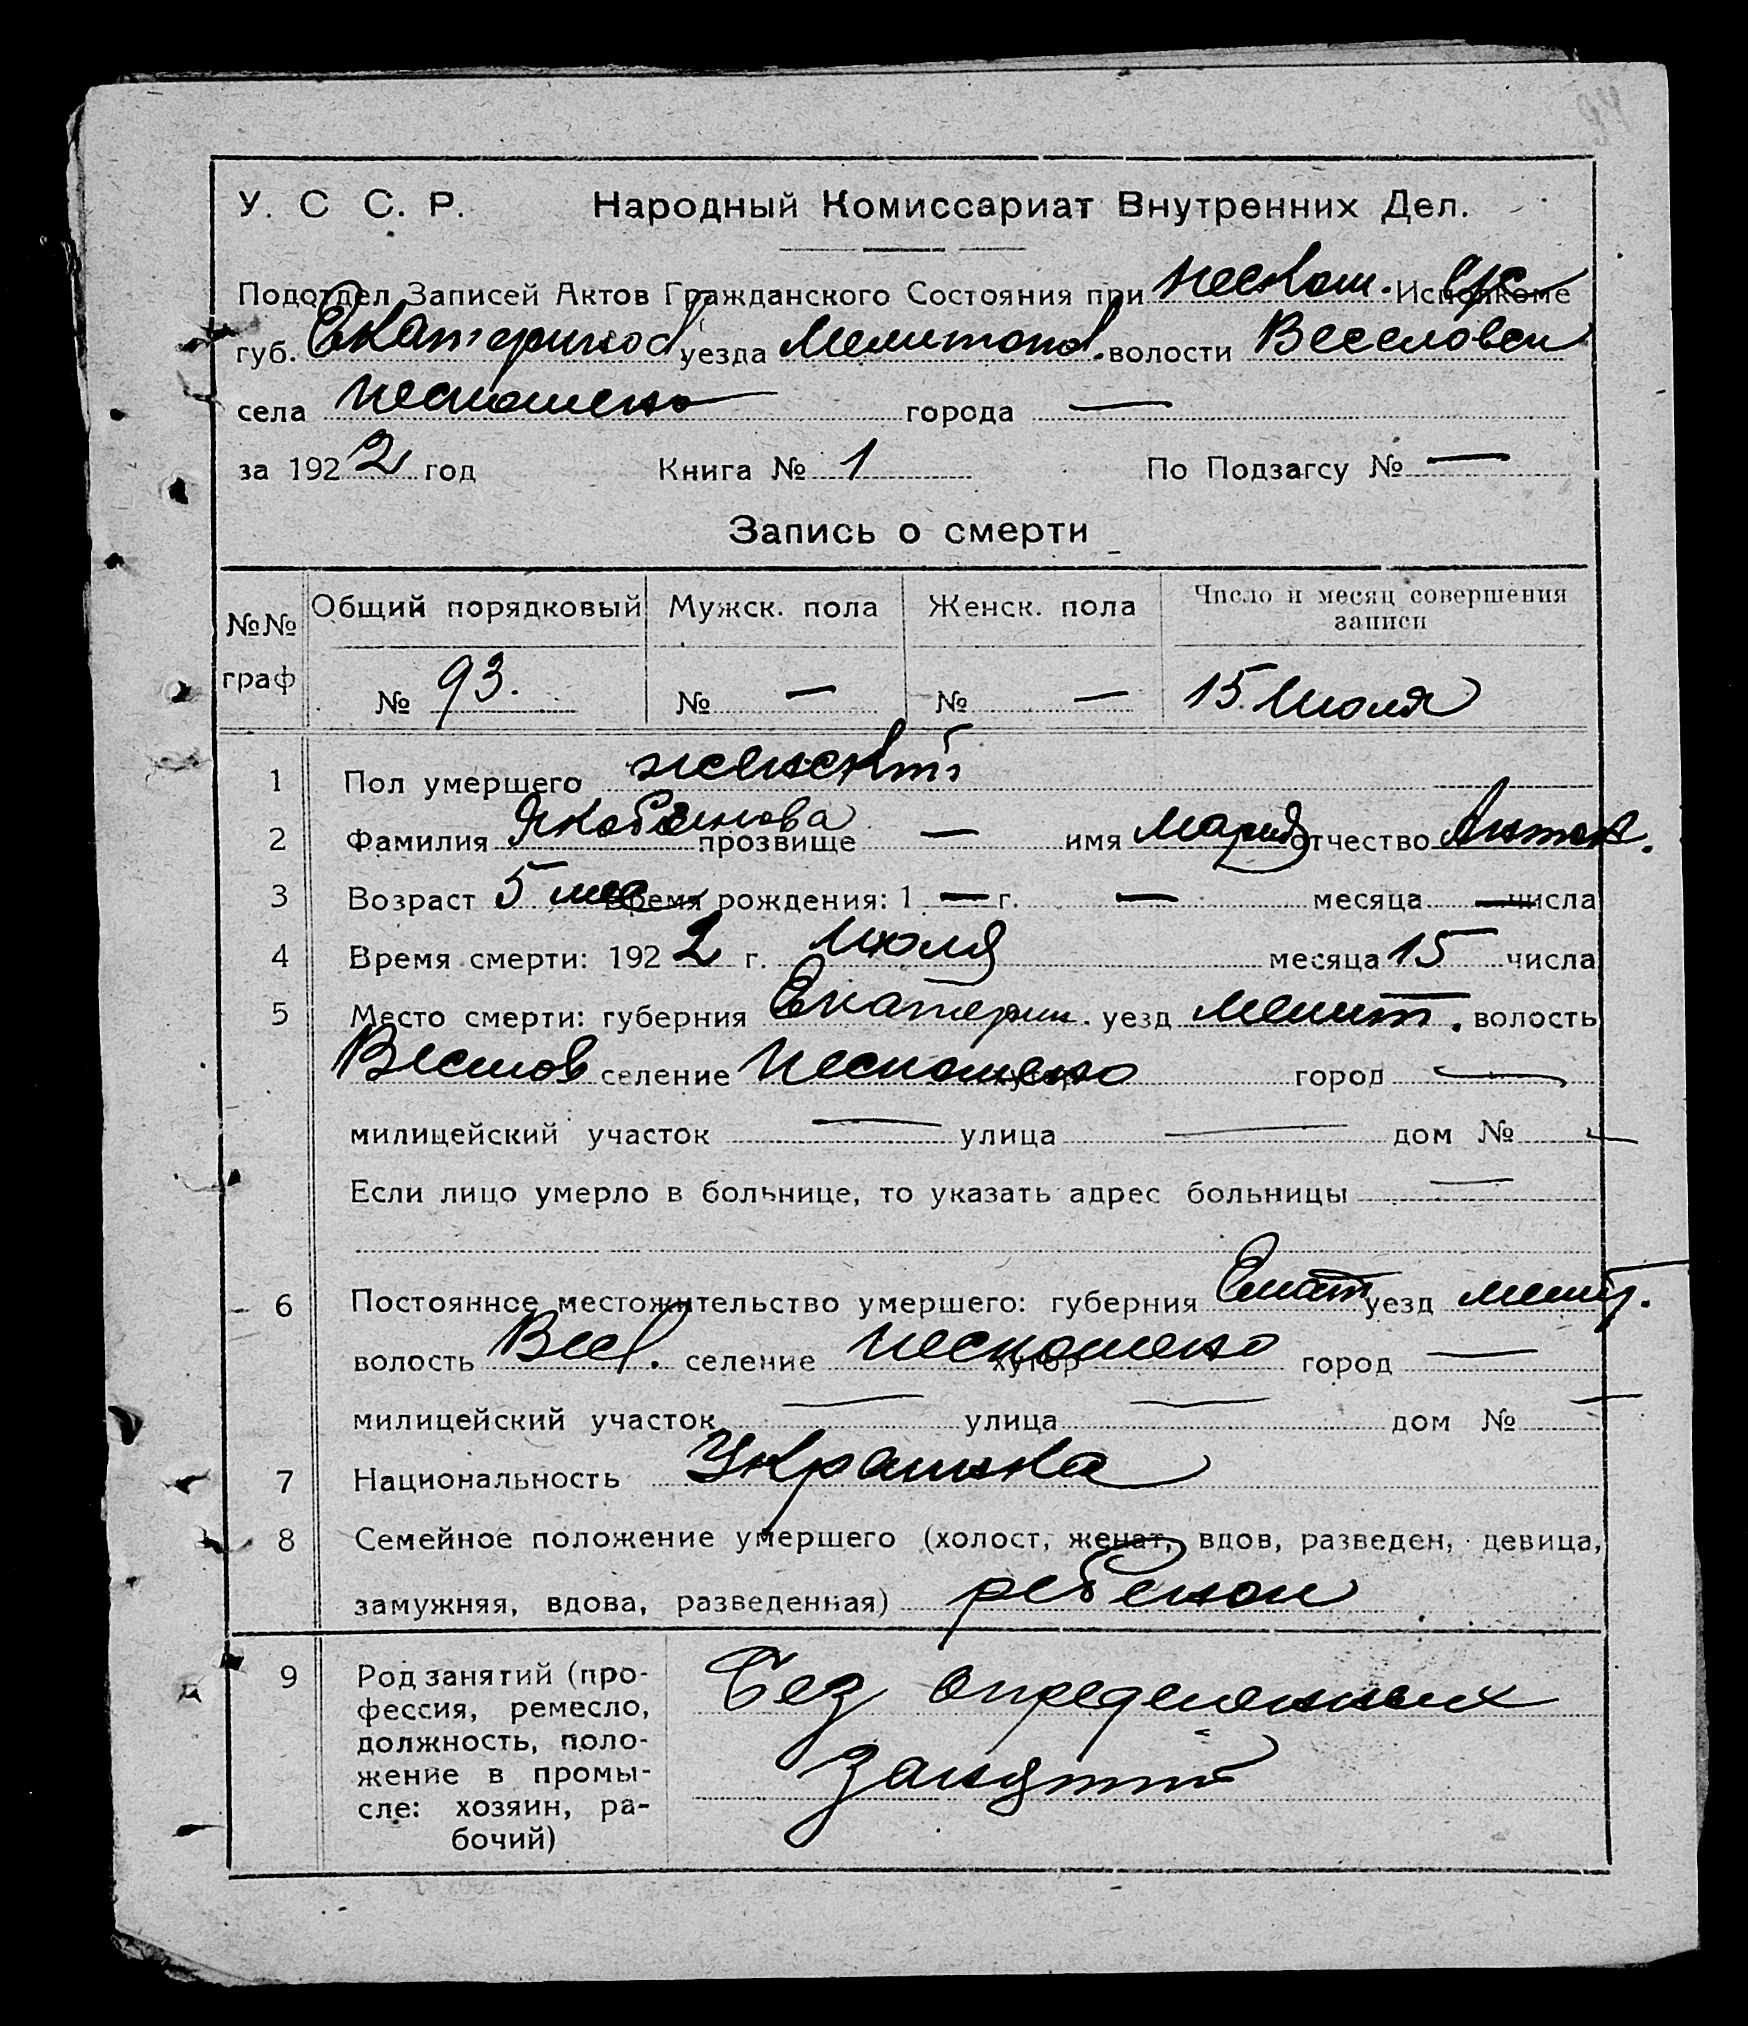 У. С С. Р. Народный Комиссариат Внутренних Дел.
Подотдел Записей Актов Гражданского Состояния при Исполкоме
губ. Екатеринос уезда Мелитопол. волости Веселовск
села города —
за 1922 год Книга № 1 По Подзагсу № —
Запись о смерти
№№ граф Общий порядковый Мужск. пола Женск. пола Число и месяц совершения записи
№ 93. № — № — 15 Июля
1 Пол умершего женский
2 Фамилия прозвище — имя Мария отчество Антон.
3 Возраст 5 мес Время рождения: 1 — г. — месяца — числа
4 Время смерти: 1922 г. Июля месяца 15 числа
5 Место смерти: губерния Екатерин. уезд Мелит. волость
селение хутор город —
милицейский участок — улица — дом № —
Если лицо умерло в больнице, то указать адрес больницы —
6 Постоянное местожительство умершего: губерния Екат уезд мелит.
волость Весел. селение хутор город —
милицейский участок — улица — дом № —
7 Национальность Украинка
8 Семейное положение умершего (холост, женат, вдов, разведен, девица,
замужняя, вдова, разведенная) ребенок
9 Род занятий (про-
фессия, ремесло,
должность, поло-
жение в промы-
сле: хозяин, ра-
бочий)
Без определенных
занятий